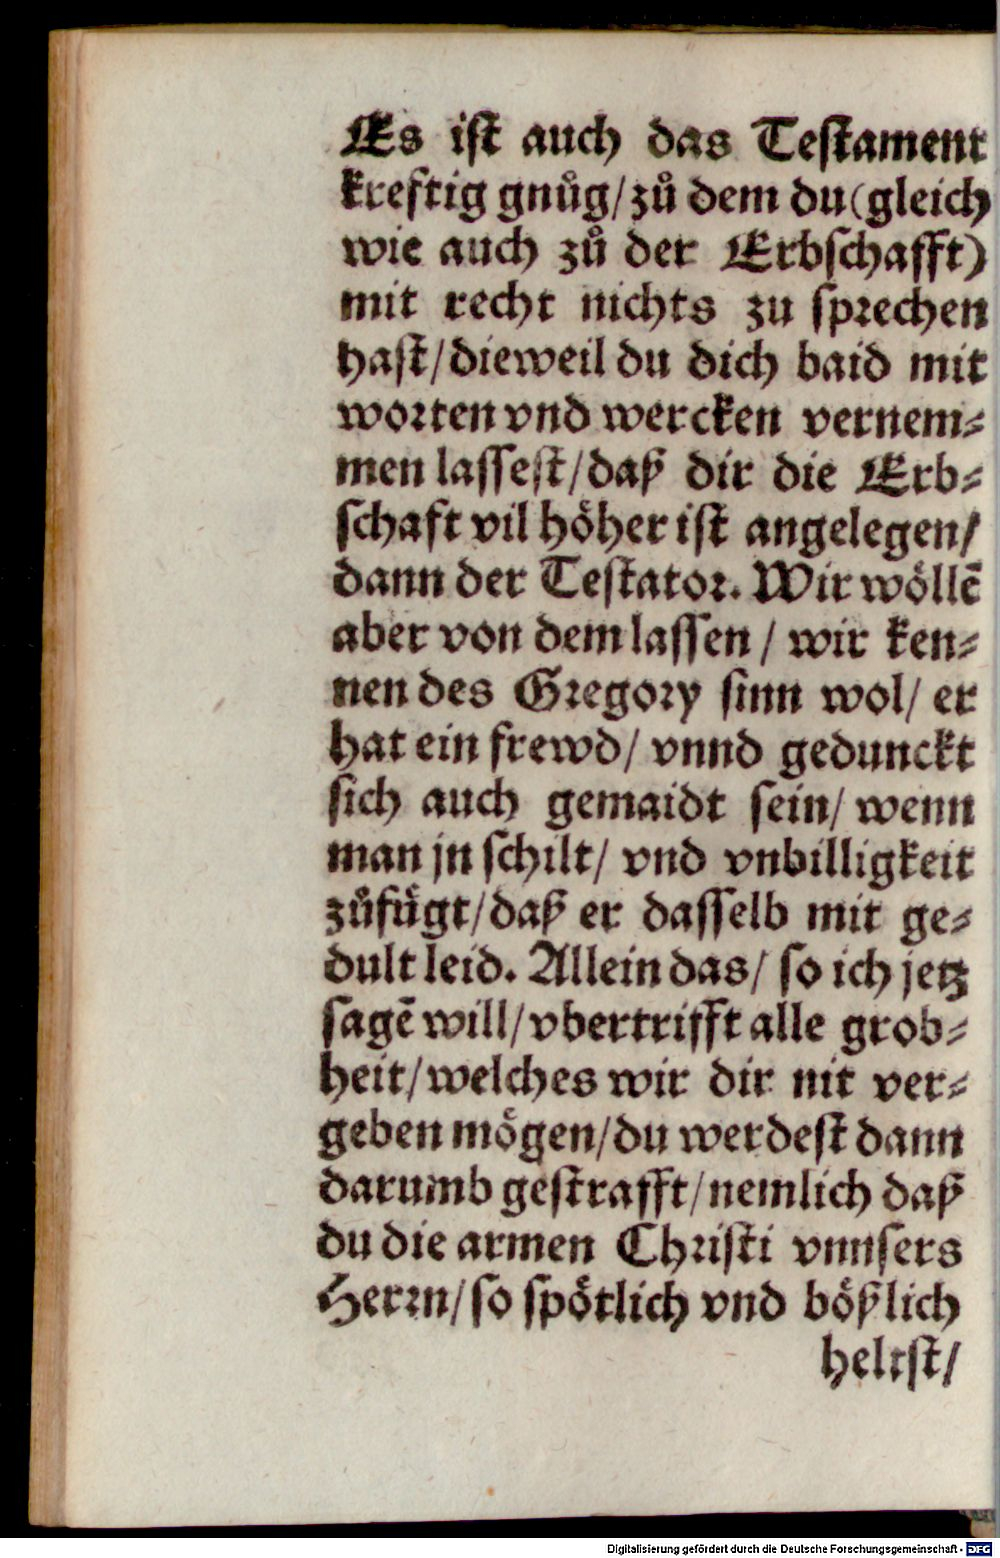 Es ist auch das Testament
kreftig gnůg/ zů dem du (gleich
wie auch zů der Erbschafft)
mit recht nichts zu sprechen
hast/ dieweil du dich baid mit
worten vnd wercken vernem⸗
men lassest/ daß dir die Erb⸗
schaft vil hoͤher ist angelegen/
dann der Testator. Wir woͤllē
aber von dem lassen / wir ken⸗
nen des Gregory sinn wol/ er
hat ein frewd/ vnnd gedunckt
sich auch gemaidt sein/ wenn
man jn schilt/ vnd vnbilligkeit
zůfuͤgt/ daß er dasselb mit ge⸗
dult leid. Allein das/ so ich jetz
sagē will/ vbertrifft alle grob⸗
heit/ welches wir dir nit ver⸗
geben moͤgen/ du werdest dann
darumb gestrafft/ nemlich daß
du die armen Christi vnnsers
Herrn/ so spoͤtlich vnd boͤßlich
heltst/
Digitalisierung gefördert durch die Deutsche Forschungsgemeinschaft - DFG